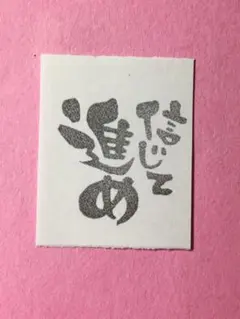 信じて
進め